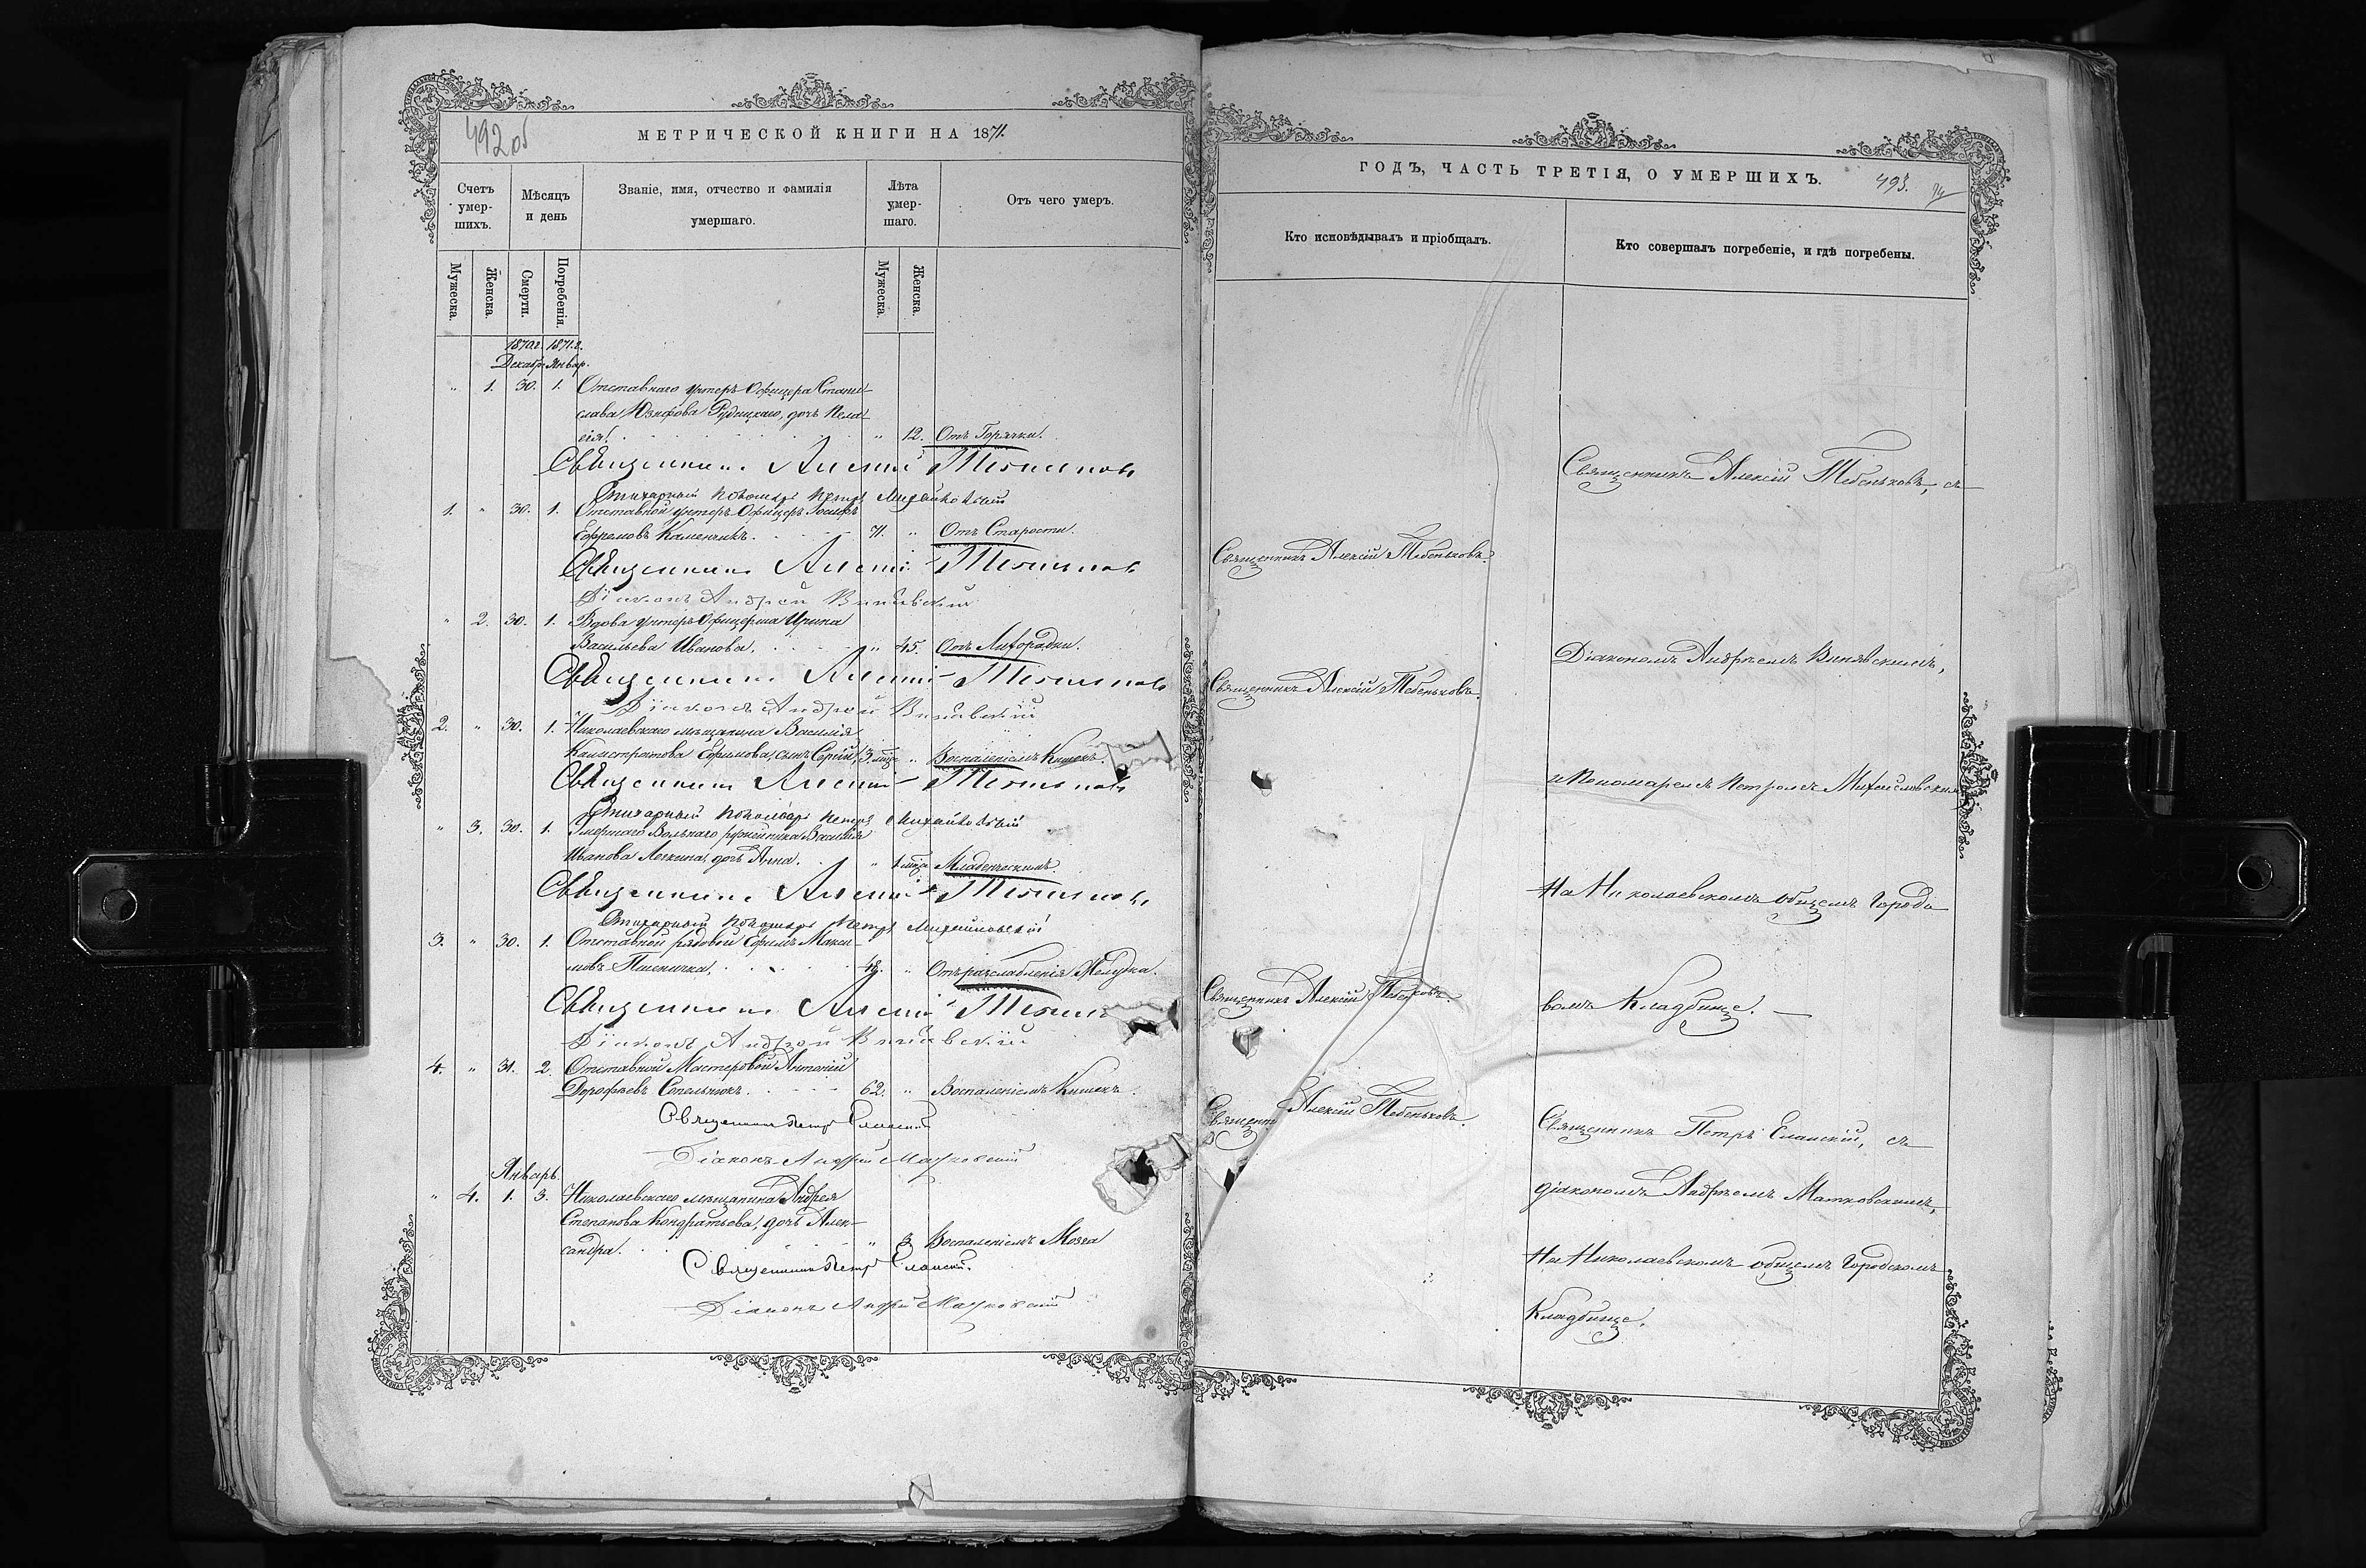 492 об
МЕТРИЧЕСКОЙ КНИГИ НА 1871.
Счетъ умершихъ.
Мѣсяцъ и день
Званіе, имя, отчество и фамилія умершаго.
Лѣта умершаго.
Отъ чего умеръ.
Мужеска.
Женска.
Смерти.
Погребенія.
Мужеска.
Женска.
1870 г. 1871 г.
Декабр. Январ.
" 1. 30. 1. Отставнаго унтеръ Офицера Стани-
слава Юзифова Рудницкаго, дочь Пела-
гія. " 12. Отъ Горячки.
Священникъ Алексій Тебеньковъ
Стихарный Пономарь Петръ
1. " 30. 1. Отставной унтеръ Офицеръ Іосифъ
Ефремовъ Каменчикъ. 71. " Отъ Старости.
Священникъ Алексій Тебеньковъ
Діаконъ Андрей Винявскій
" 2. 30. 1. Вдова унтеръ Офицерша Ирина
Васильева Иванова. " 45. Отъ Лихорадки.
Священникъ Алексій Тебеньковъ
Діаконъ Андрей Винявскій
2. " 30. 1. Николаевскаго мѣщанина Василія
Калистратова Ефимова, сынъ Сергій 3 мѣс. " Воспаленіемъ Кишекъ.
Священникъ Алексій Тебеньковъ
Стихарный Пономарь Петръ
" 3. 30. 1. Умершаго Вольнаго Василія
Иванова дочь Анна. " Младенческимъ.
Священникъ Алексій Тебеньковъ
Стихарный Пономарь Петръ
3. " 30. 1. Отставной рядовой Ефимъ Макси-
мовъ Пшеничка. 48. " Отъ разслабленія Желудка.
Священникъ Алексій
Діаконъ Андрей Винявскій
4. " 31. 2. Отставной Мастеровой Антоній
Дорофѣевъ Сопельнюкъ. 62. " Воспаленіемъ Кишекъ.
Священникъ Петръ Еланскій
Діаконъ Андрей Матковскій
Январь.
" 4. 1. 3. Николаевскаго мѣщанина Андрея
Степанова Кондратьева, дочь Алек-
сандра. " 3 Воспаленіемъ Мозга
Священникъ Петръ Еланскій.
Діаконъ Андрей Матковскій
ГОДЪ, ЧАСТЬ ТРЕТІЯ, О УМЕРШИХЪ.
493.
Кто исповѣдывалъ и пріобщалъ.
Кто совершалъ погребеніе, и гдѣ погребены.
Священникъ Алексій Тебеньковъ, съ
Священникъ Алексій Тебеньковъ.
Діакономъ Андреемъ Винявскимъ,
Священникъ Алексій Тебеньковъ.
и Пономаремъ Петромъ
На Николаевскомъ общемъ Городс-
Священникъ Алексій Тебеньковъ.
комъ Кладбище.
Священникъ Алексій Тебеньковъ.
Священникъ Петръ Еланскій, съ
діакономъ Андреемъ Матковскимъ,
На Николаевскомъ общемъ Городскомъ
Кладбище.